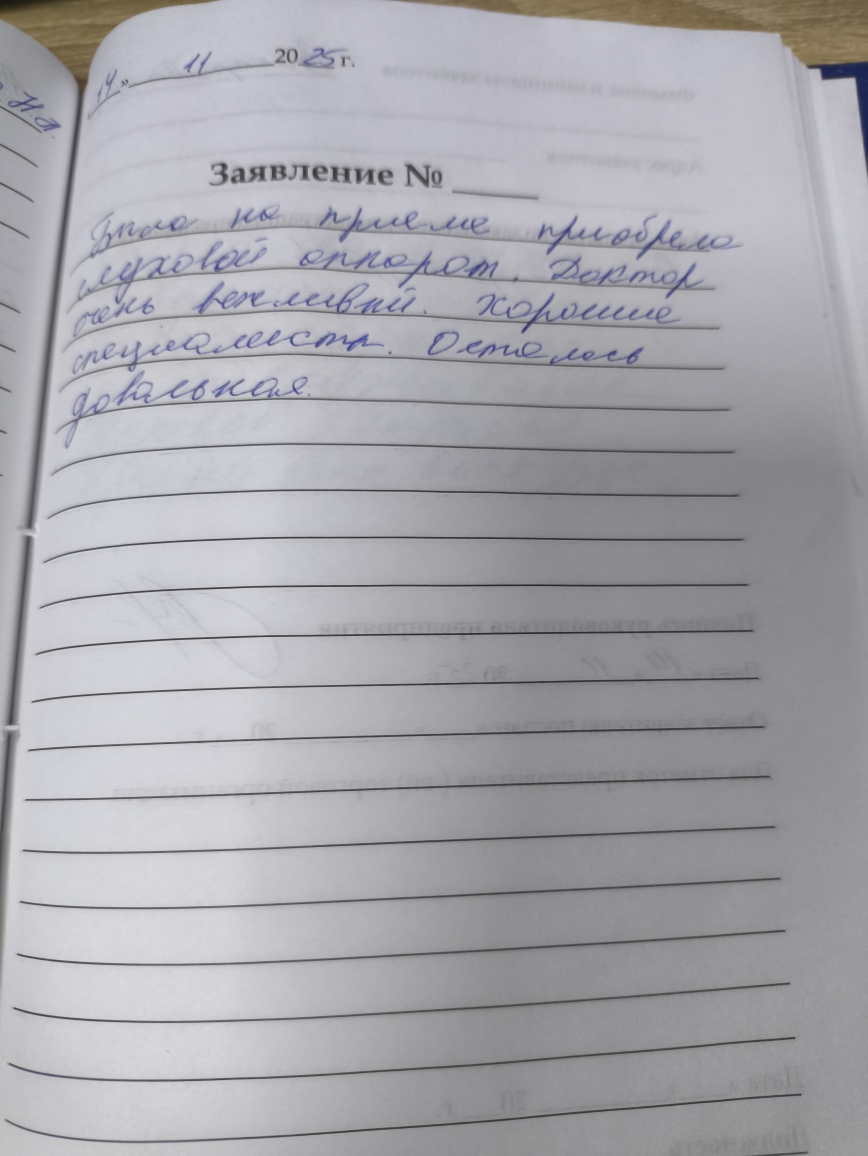 14 » 11 2025 г.
Н.А.
Заявление № ______
Была на приеме приобрела
слуховой аппарат. Доктор
очень вежливый. Хорошие
специалисты. Осталась
довальная.